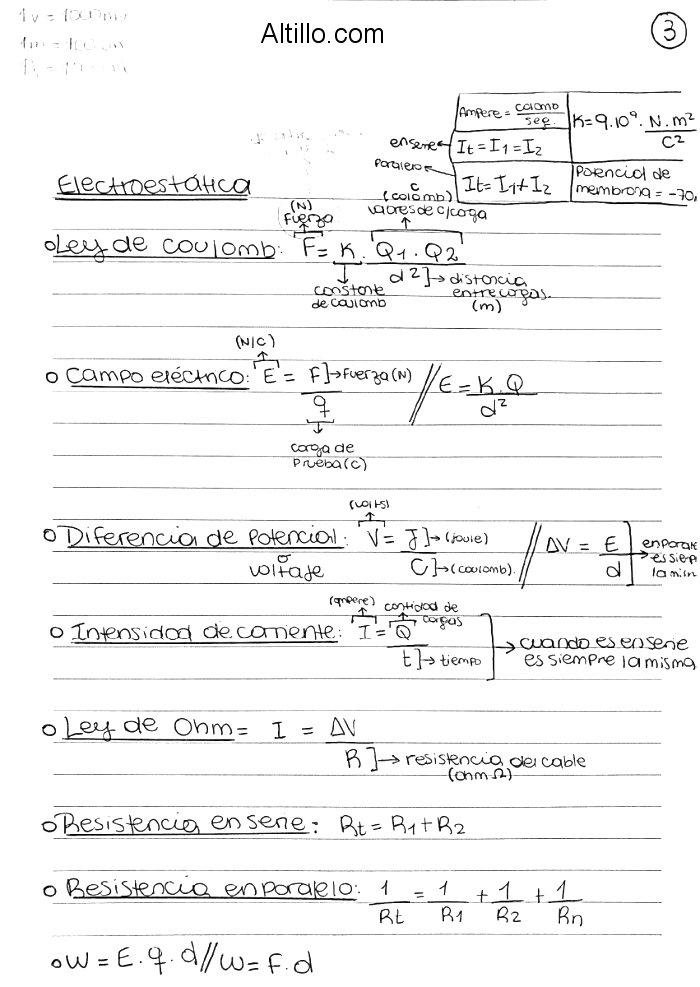 1v = 1000mv
Altillo.com
3
1m = 100cm
Ampere = colomb / seg.
K=9.10⁹. N.m² / C²
enserie ← It = I1 = I2
Paralelo ← It = I1 + I2
Potencial de membrana = -70,
Electroestática
c (colomb) valores de c/carga
(N) Fuerza
Ley de coulomb: F = K . Q1 . Q2 / d² → distancia entre cargas. (m)
constante de coulomb
(N/C)
Campo eléctrico: E = F → Fuerza (N) / q // E = K.Q / d²
carga de Prueba (C)
(volts)
Diferencia de potencial: V = J → (joule) / C → (coulomb). // ΔV = E / d
o voltaje
(ampere) cantidad de cargas
Intensidad de corriente: I = Q / t → tiempo → cuando es en serie es siempre la misma
Ley de Ohm = I = ΔV / R → resistencia del cable (ohm Ω)
Resistencia en serie: Rt = R1 + R2
Resistencia en paralelo: 1/Rt = 1/R1 + 1/R2 + 1/Rn
W = E . q . d // W = F . d